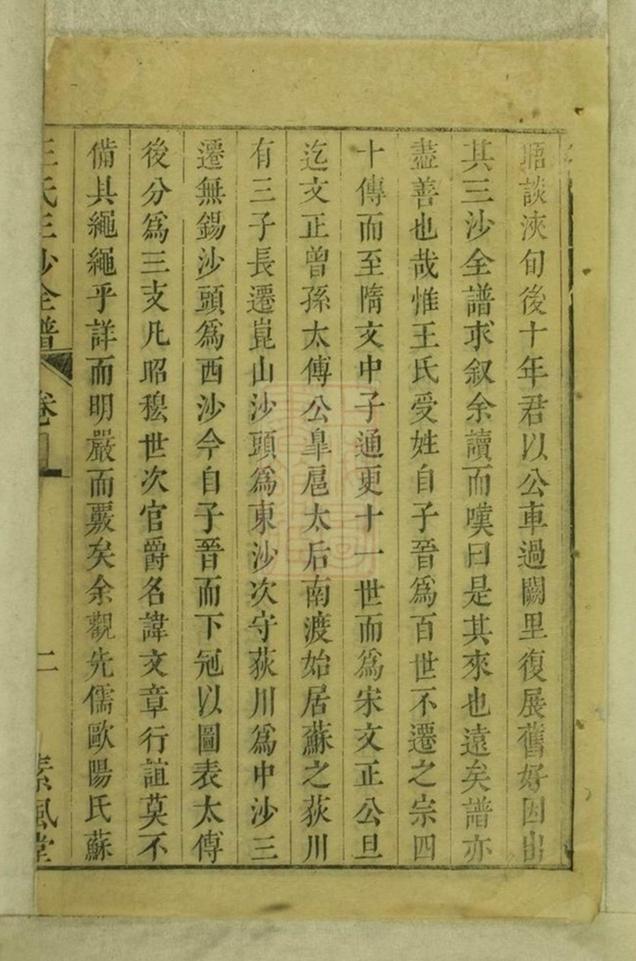 晤談浹旬後十年君以公車過闕里復展舊好因出
其三沙全譜求叙余讀而嘆曰是其來也遠矣譜亦
盡善也哉惟王氏受姓自子晉爲百世不遷之宗四
十傳而至隋文中子通更十一世而爲宋文正公旦
迄文正曾孫太傅公臯扈太后南渡始居蘇之荻川
有三子長遷崑山沙頭爲東沙次守荻川爲中沙三
遷無錫沙頭爲西沙今自子晉而下冠以圖表太傅
後分爲三支凡昭穆世次官爵名諱文章行誼莫不
備具繩繩乎詳而明嚴而覈矣余觀先儒歐陽氏蘇
王氏三沙全譜 卷 二 素風堂